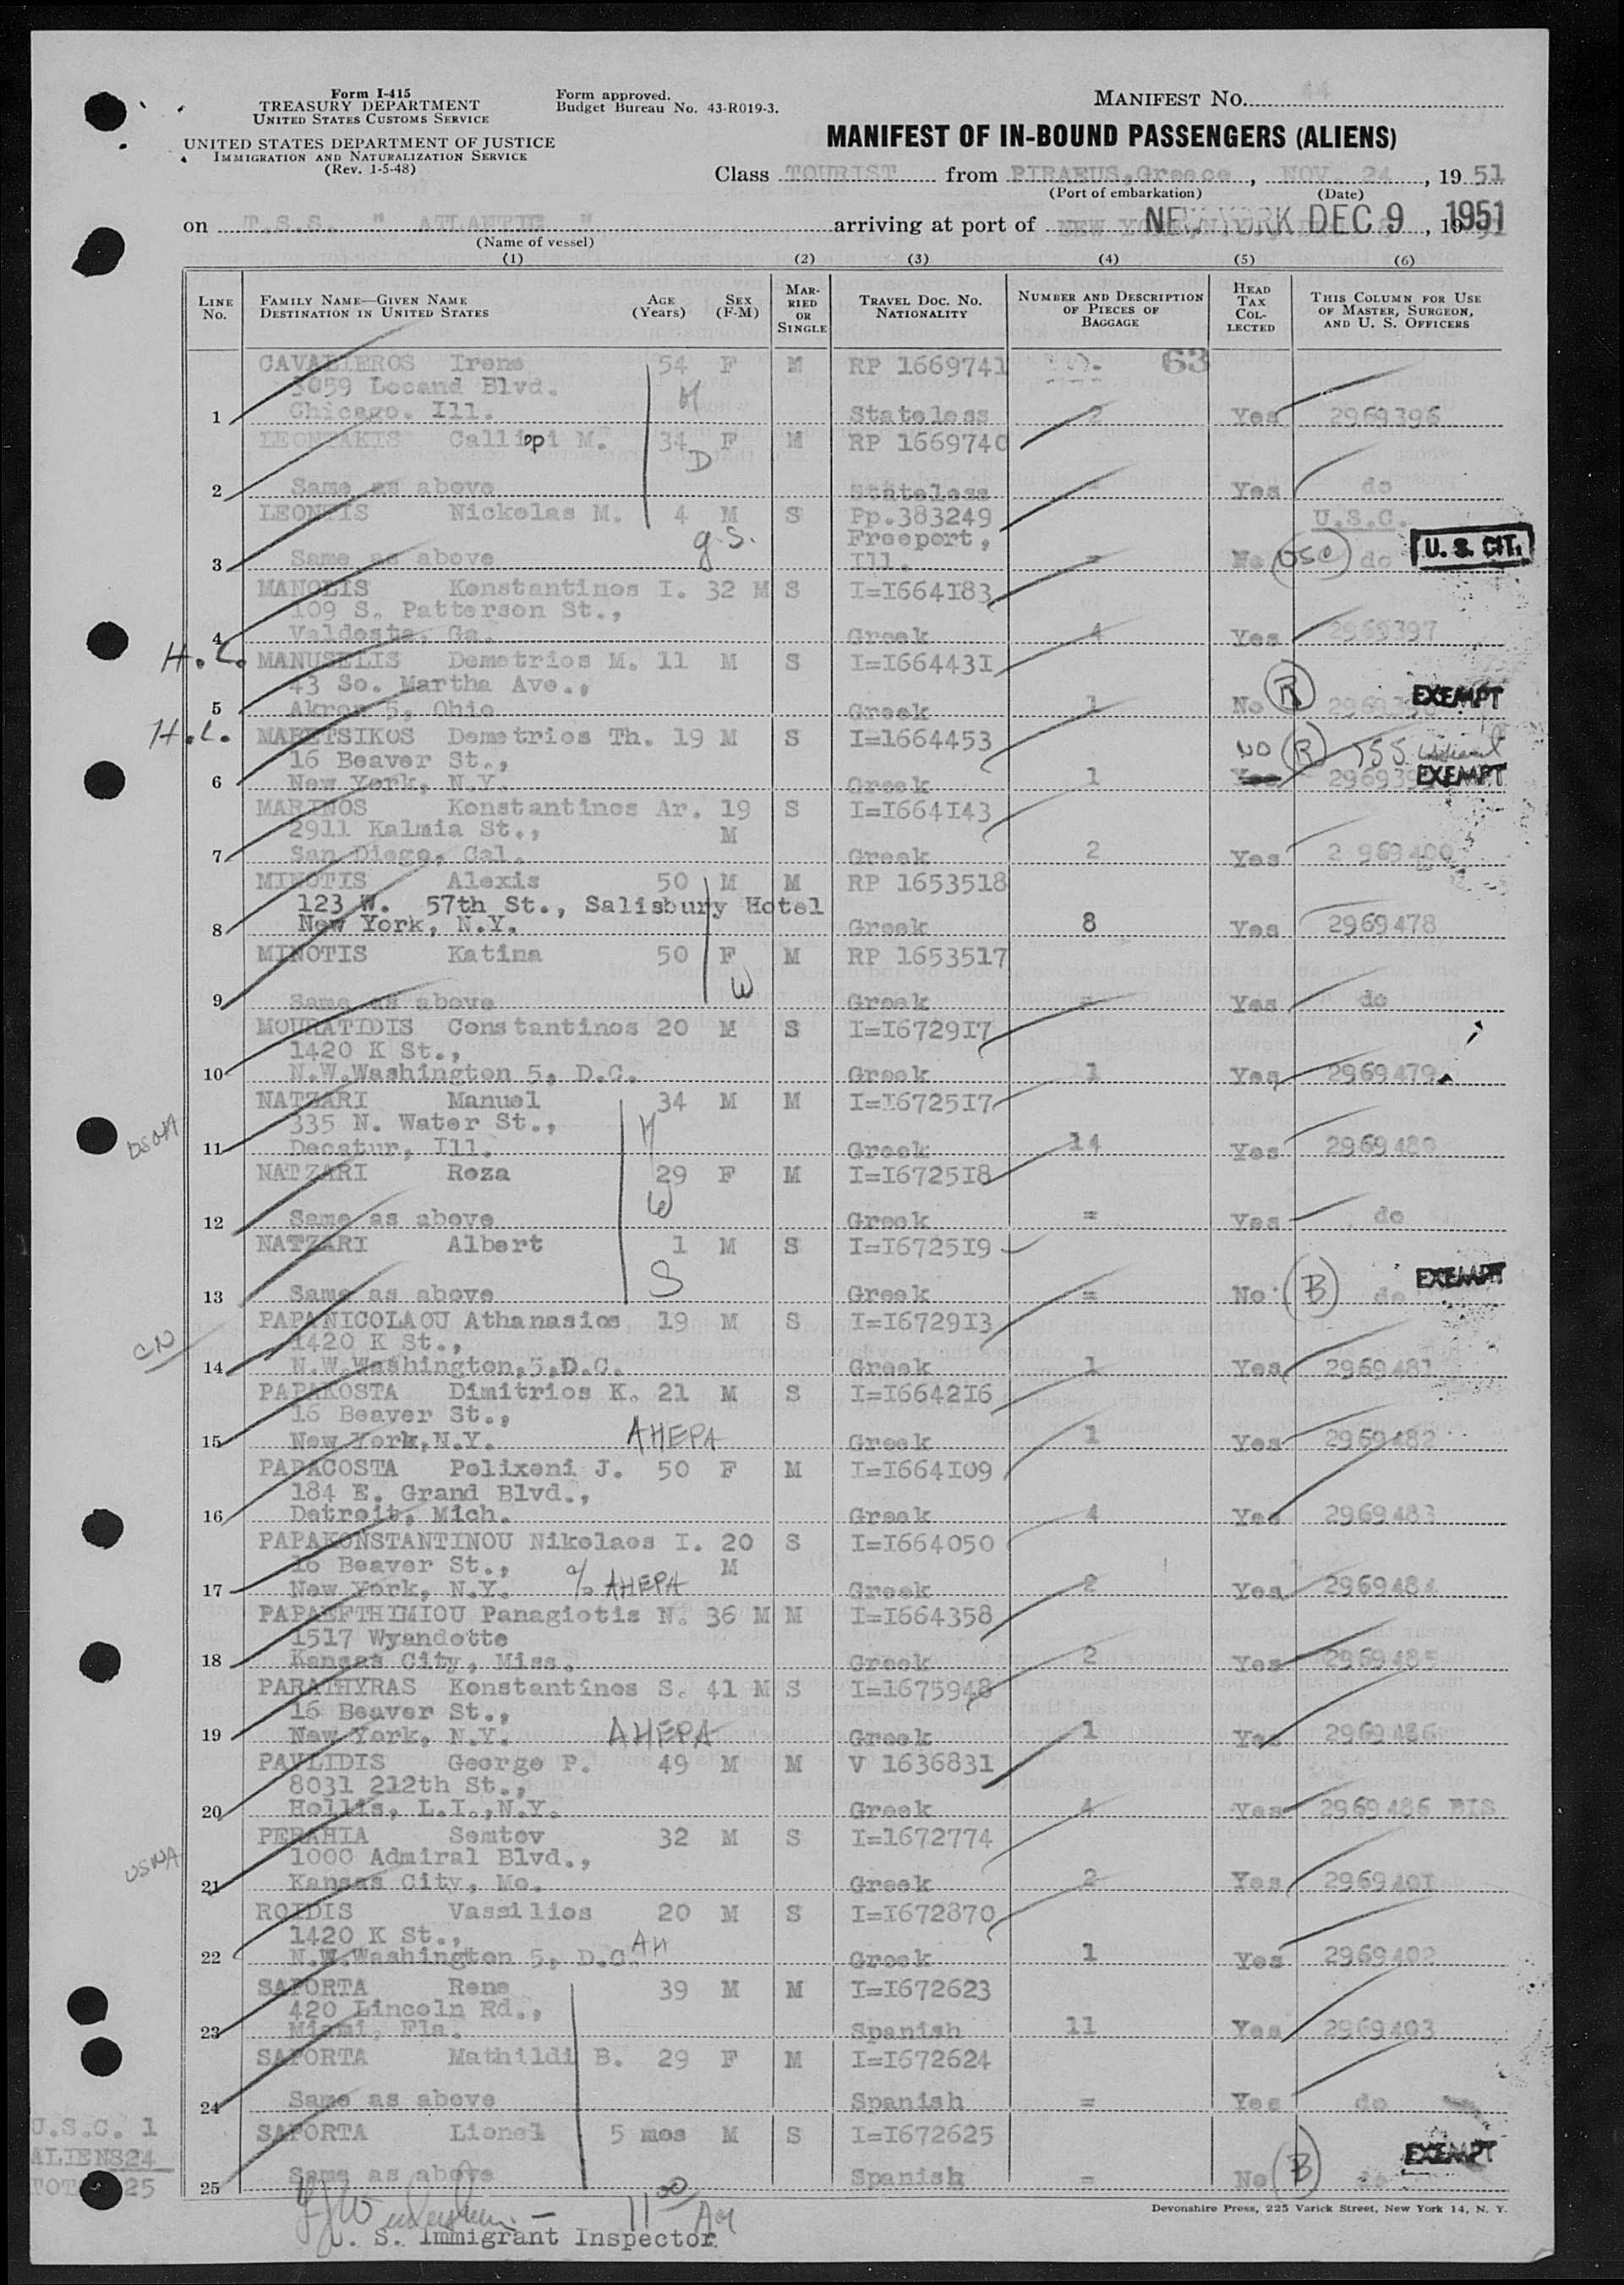 Form I-415
TREASURY DEPARTMENT
UNITED STATES CUSTOMS SERVICE
UNITED STATES DEPARTMENT OF JUSTICE
IMMIGRATION AND NATURALIZATION SERVICE
(Rev. 1-5-48)
Form approved.
Budget Bureau No. 43-R019-3.
MANIFEST NO. 44
MANIFEST OF IN-BOUND PASSENGERS (ALIENS)
Class TOURIST from PIRAEUS, Greece, NOV. 24, 19 51
(Port of embarkation) (Date)
on T.S.S. " ATLANTIC " arriving at port of NEW YORK DEC 9, 1951
(Name of vessel)
(1) (2) (3) (4) (5) (6)
LINE NO.
FAMILY NAME—GIVEN NAME
DESTINATION IN UNITED STATES
AGE (Years)
SEX (F-M)
MARRIED OR SINGLE
TRAVEL DOC. NO. NATIONALITY
NUMBER AND DESCRIPTION OF PIECES OF BAGGAGE
HEAD TAX COLLECTED
THIS COLUMN FOR USE OF MASTER, SURGEON, AND U. S. OFFICERS
CAVALIEROS Irene 54 F M RP 1669741 63
3059 Locand Blvd. H
1 Chicago. Ill. Stateless 2 Yes 2969396
LEONTAKIS Calliopi M. 34 F M RP 1669740
D
2 Same as above Stateless = Yes do
LEONTIS Nickolas M. 4 M S Pp.383249 U.S.C.
g.s. Freeport,
3 Same as above Ill. = No (USC) do U. S. CIT.
MANOLIS Konstantinos I. 32 M S I=I664I83
109 S. Patterson St.,
4 Valdosta, Ga. Greek 4 Yes 2969397
H.L. MANUSELIS Demetrios M. 11 M S I=I66443I
43 So. Martha Ave.,
5 Akron 5, Ohio Greek 1 No (R) EXEMPT
H.L. MARETSIKOS Demetrios Th. 19 M S I=1664453
16 Beaver St., NO (R)
6 New York, N.Y. Greek 1 Yes EXEMPT
MARINOS Konstantinos Ar. 19 S I=I664I43
2911 Kalmia St., M
7 San Diego, Cal. Greek 2 Yes 2 969400
MINOTIS Alexis 50 M M RP 1653518
123 W. 57th St., Salisbury Hotel
8 New York, N.Y. Greek 8 Yes 2969478
MINOTIS Katina 50 F M RP 1653517
W
9 Same as above Greek = Yes do
MOURATIDIS Constantinos 20 M S I=I6729I7
1420 K St.,
10 N.W.Washington 5, D.C. Greek 1 Yes 2969479
NATZARI Manuel 34 M M I=I6725I7
335 N. Water St., H
11 Decatur, Ill. Greek 14 Yes 2969480
NATZARI Roza 29 F M I=I6725I8
W
12 Same as above Greek = Yes do
NATZARI Albert 1 M S I=I6725I9
S
13 Same as above Greek = No (B) do EXEMPT
PAPANICOLAOU Athanasios 19 M S I=I6729I3
1420 K St.,
14 N.W.Washington,5,D.C. Greek 1 Yes 2969481
PAPAKOSTA Dimitrios K. 21 M S I=I6642I6
16 Beaver St.,
15 New York,N.Y. AHEPA Greek 1 Yes 2969482
PAPACOSTA Polixeni J. 50 F M I=I664I09
184 E. Grand Blvd.,
16 Detroit, Mich. Greek 4 Yes 2969483
PAPAKONSTANTINOU Nikolaos I. 20 S I=I664050
16 Beaver St., M
17 New York, N.Y. % AHEPA Greek 2 Yes 2969484
PAPAEFTHIMIOU Panagiotis N. 36 M M I=I664358
1517 Wyandotte
18 Kansas City, Miss. Greek 2 Yes 2969485
PARATHYRAS Konstantinos S. 41 M S I=1675948
16 Beaver St.,
19 New York, N.Y. AHEPA Greek 1 Yes 2969486
PAVLIDIS George P. 49 M M V 1636831
8031 212th St.,
20 Hollis, L.I.,N.Y. Greek 4 Yes 2969486 BIS
PERAHIA Semtov 32 M S I=1672774
1000 Admiral Blvd.,
21 Kansas City, Mo. Greek 2 Yes 2969401
ROIDIS Vassilios 20 M S I=I672870
1420 K St., AH
22 N.W.Washington 5, D.C. Greek 1 Yes 2969402
SAPORTA Rene 39 M M I=I672623
420 Lincoln Rd.,
23 Miami, Fla. Spanish 11 Yes 2969403
SAPORTA Mathildi B. 29 F M I=I672624
24 Same as above Spanish = Yes do
SAPORTA Lionel 5 mos M S I=I672625
25 Same as above Spanish = No (B) do EXEMPT
U.S.C. 1
ALIENS24
TOT 25
11 00 AM
U. S. Immigrant Inspector
Devonshire Press, 225 Varick Street, New York 14, N. Y.